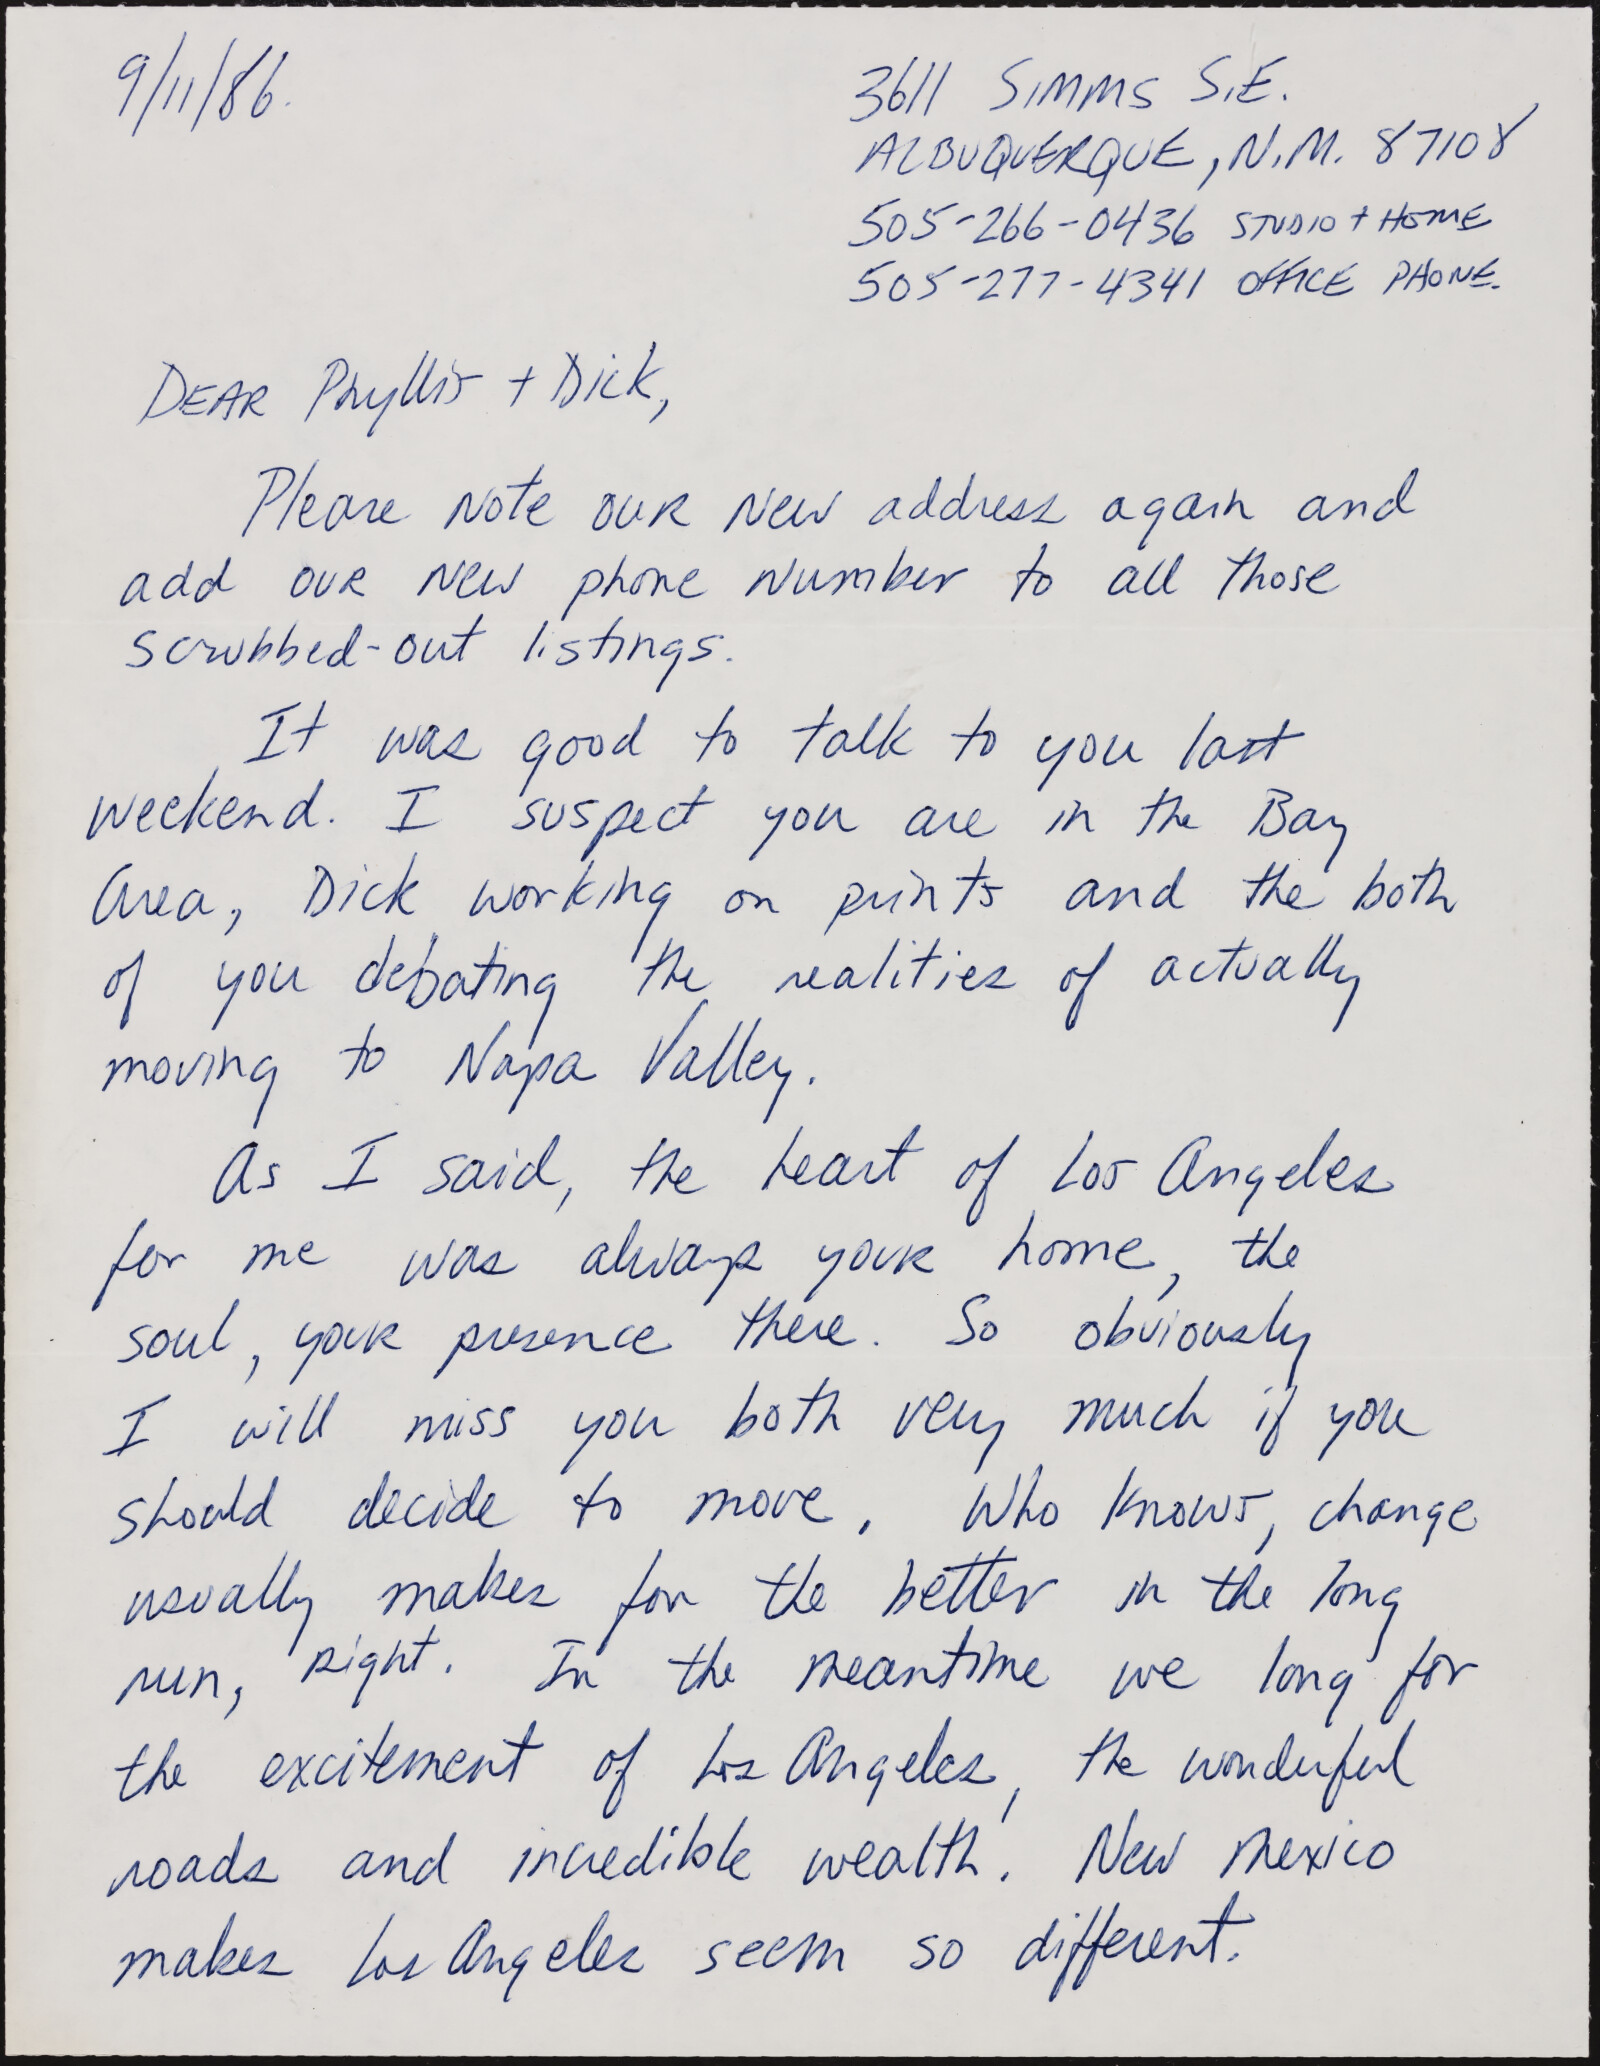 9/11/86.
3611 SIMMS S.E.
ALBUQUERQUE, N.M. 87108
505-266-0436 STUDIO + HOME
505-277-4341 OFFICE PHONE.
DEAR Phyllis + Dick,
Please Note our New address again and
add our New phone Number to all those
scrubbed-out listings.
It was good to talk to you last
weekend. I suspect you are in the Bay
Area, Dick working on prints and the both
of you debating the realities of actually
moving to Napa Valley.
As I said, the heart of Los Angeles
for me was always your home, the
soul, your presence there. So obviously
I will miss you both very much if you
should decide to move. Who knows, change
usually makes for the better in the long
run, right. In the meantime we long for
the excitement of Los Angeles, the wonderful
roads and incredible wealth! New Mexico
makes Los Angeles seem so different.